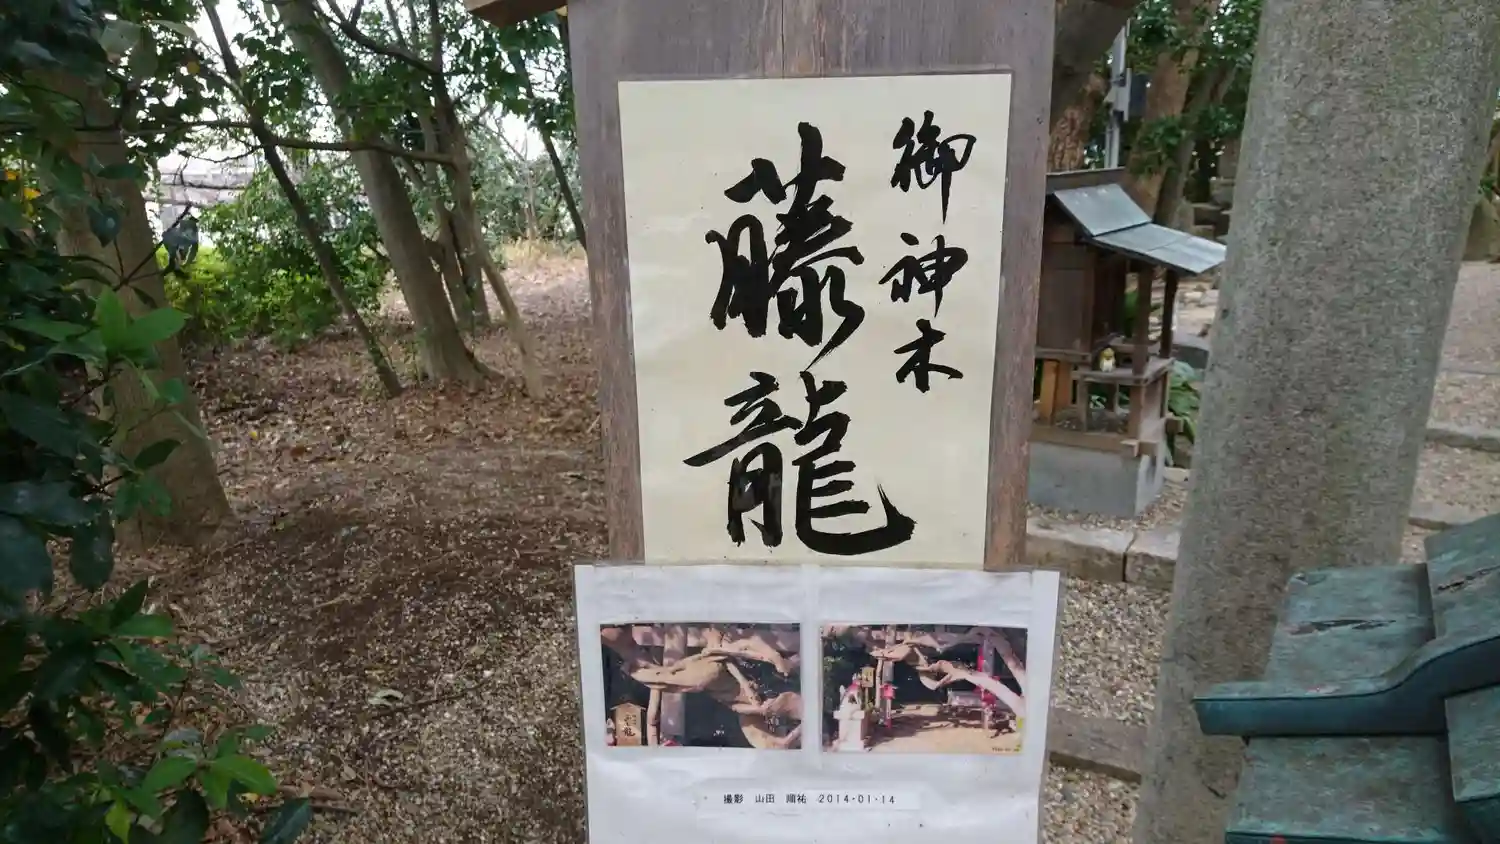 御神木
藤龍
撮影 山田 順祐 2014・01・14